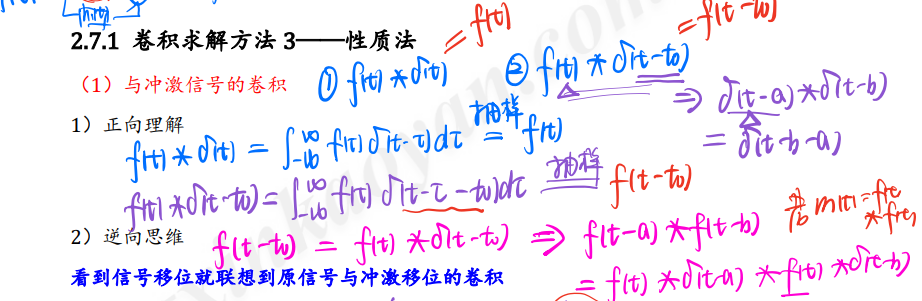 2.7.1 卷积求解方法 3——性质法
(1)与冲激信号的卷积
① f(t)*δ(t) = f(t)
② f(t)*δ(t-t₀) = f(t-t₀)
⇒ δ(t-a)*δ(t-b)
= δ(t-b-a)
1)正向理解
f(t)*δ(t) = ∫_{-∞}^{∞} f(τ)δ(t-τ)dτ 抽样= f(t)
f(t)*δ(t-t₀) = ∫_{-∞}^{∞} f(τ) δ(t-τ-t₀)dτ 抽样 f(t-t₀)
2)逆向思维
f(t-t₀) = f(t)*δ(t-t₀) ⇒ f(t-a)*f(t-b)
= f(t)*δ(t-a)*f(t)*δ(t-b)
看到信号移位就联想到原信号与冲激移位的卷积